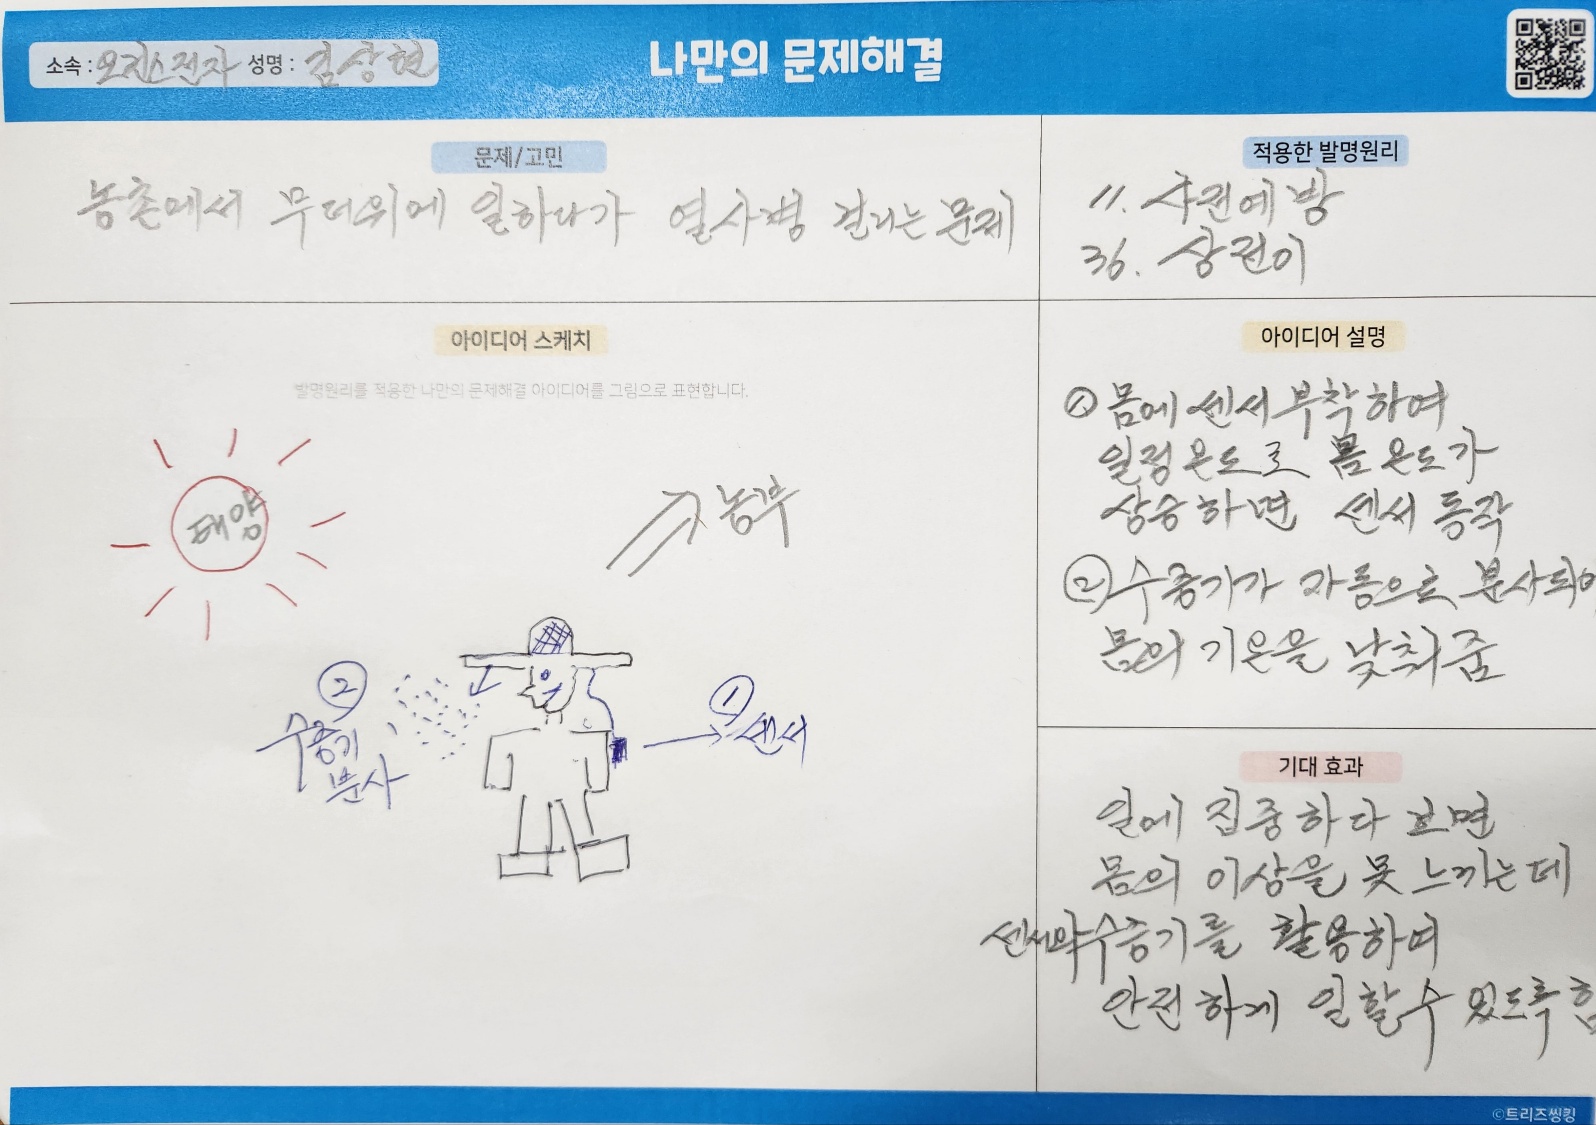 소속 : 오리스전자 성명 : 김상현
나만의 문제해결
문제/고민
농촌에서 무더위에 일하다가 열사병 걸리는 문제
적용한 발명원리
11. 사전예방
36. 상전이
아이디어 스케치
발명원리를 적용한 나만의 문제해결 아이디어를 그림으로 표현합니다.
태양
농부
②
수증기
분사
①
센서
아이디어 설명
① 몸에 센서 부착하여
일정온도로 몸 온도가
상승하면 센서 동작
② 수증기가 자동으로 분사되어
몸의 기온을 낮춰줌
기대 효과
일에 집중하다 보면
몸의 이상을 못 느끼는데
센서와 수증기를 활용하여
안전하게 일할 수 있도록 함
©트리즈씽킹